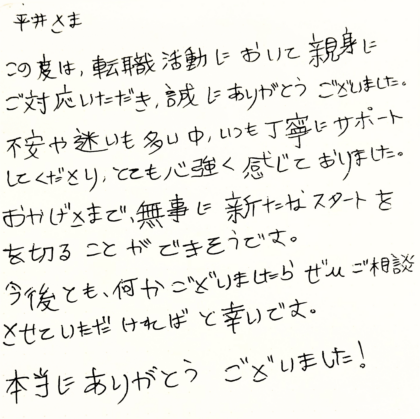 平井さま
この度は、転職活動において親身に
ご対応いただき、誠にありがとうございました。
不安や迷いも多い中、いつも丁寧にサポート
してくださり、とても心強く感じておりました。
おかげさまで、無事に新たなスタートを
を切ることができそうです。
今後とも、何かございましたらぜひご相談
させていただければと幸いです。
本当にありがとうございました！